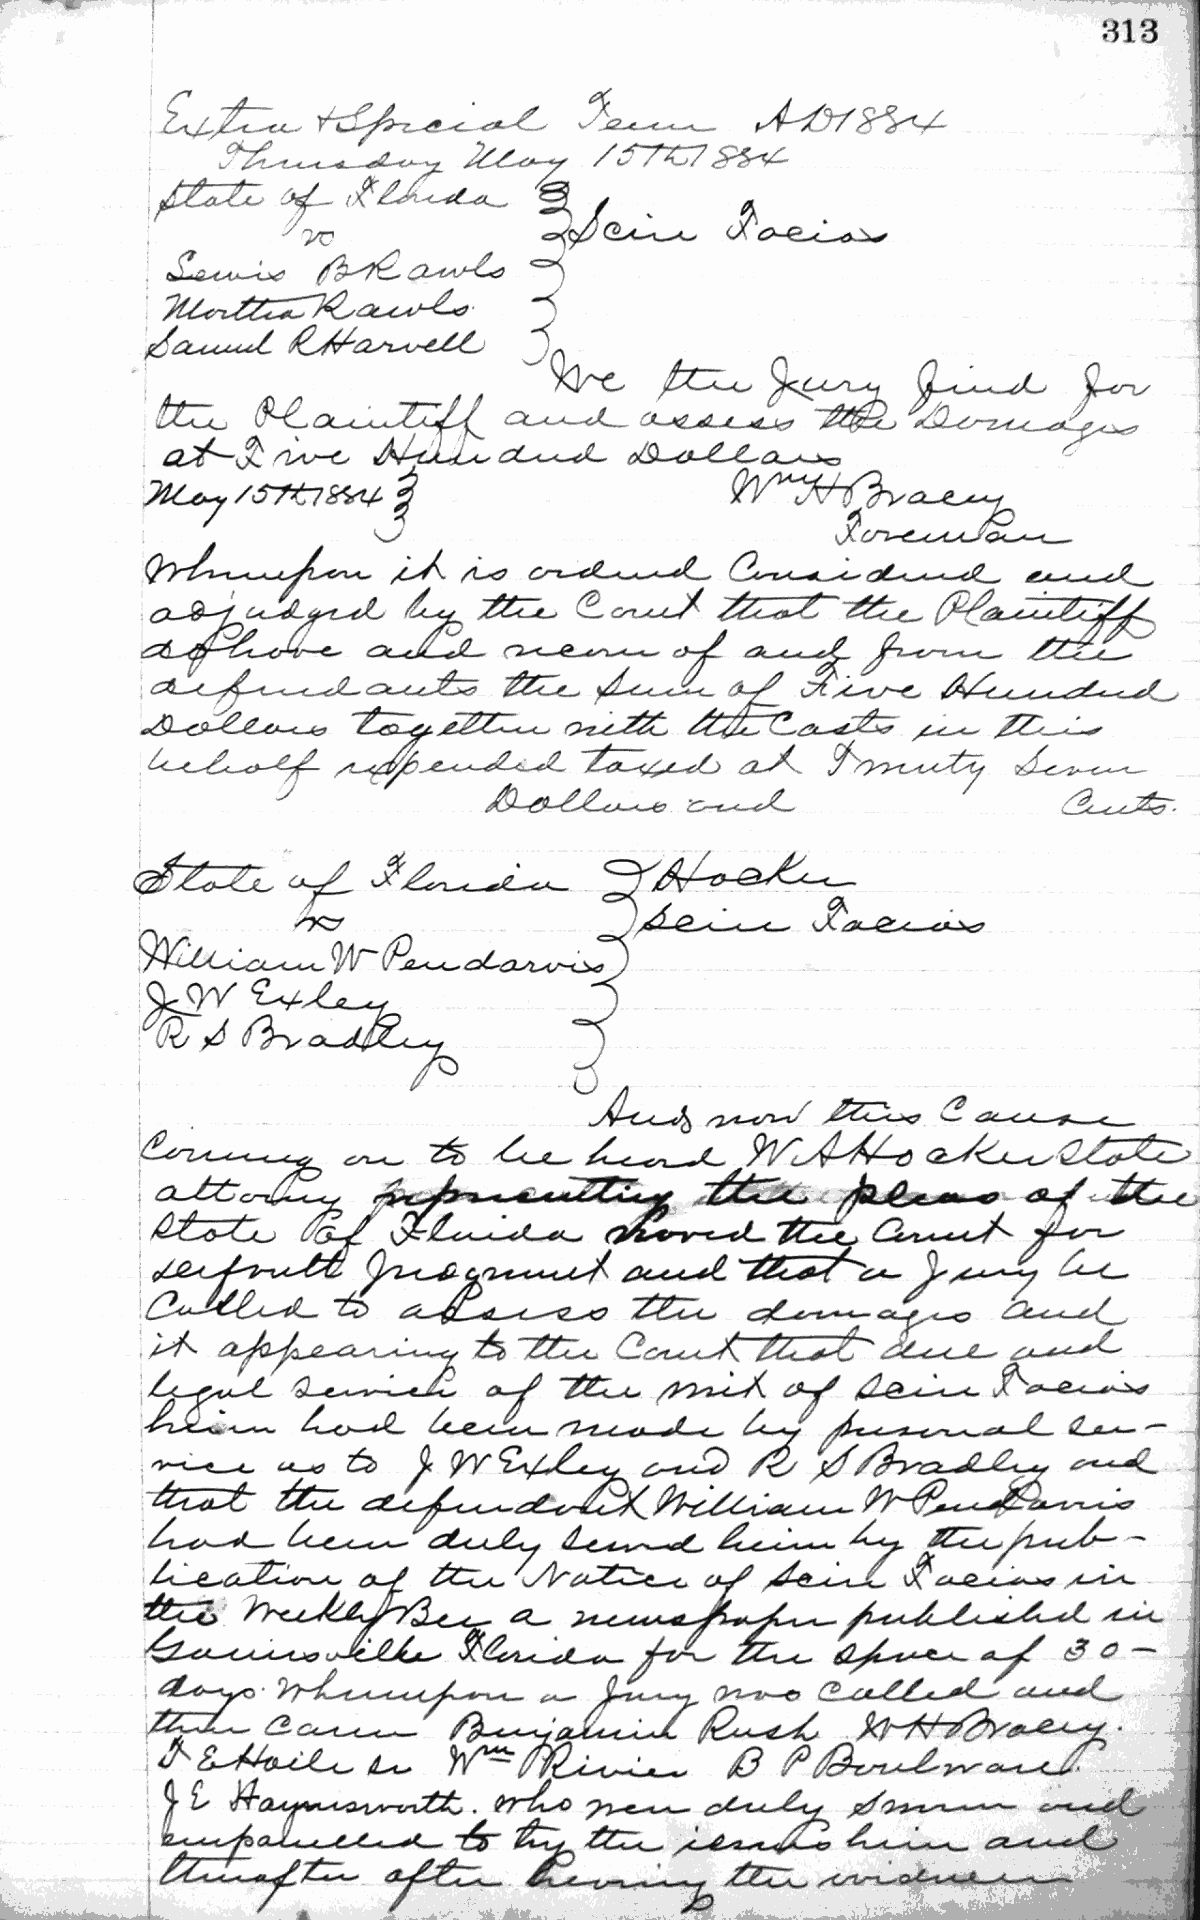 313
Extra & Special Term AD 1884
Thursday May 15th 1884
State of Florida
vs
Scire Facias
Lewis B Rawls
Martha Rawls
Samul R Harvell
We the Jury find for
the Plaintiff and assess the Damages
at Five Hundred Dollars
May 15th 1884
Wm H Bracey
Foreman
Whereupon it is ordered Considered and
adjudged by the Court that the Plaintiff
do have and recover of and from the
defendants the Sum of Five Hundred
Dollars together with the Costs in this
behalf expended taxed at Twenty Seven
Dollars and Cents.
State of Florida
Hocker
vs
Scire Facias
William W Pendarvis
J W Exley
R S Bradley
And now this Cause
Coming on to be heard W A Hocker State
attorney representing the pleas of the
State of Florida moved the Court for
default Judgment and that a Jury be
Called to assess the damages and
it appearing to the Court that due and
legal service of the writ of Scire Facias
herein had been made by personal ser-
vice as to J W Exley and R S Bradley and
that the defendant William W Pendarvis
had been duly served herein by the pub-
lication of the Notice of Scire Facias in
the Weekly Bee a newspaper published in
Gainesville Florida for the space of 30-
days. Whereupon a Jury was called and
then came Benjamin Rush W H Bracey.
T E Haile sr Wm Rivier B P Boulware.
J E Haynsworth. who were duly sworn and
empanelled to try the issues herein and
thereafter after hearing the evidence